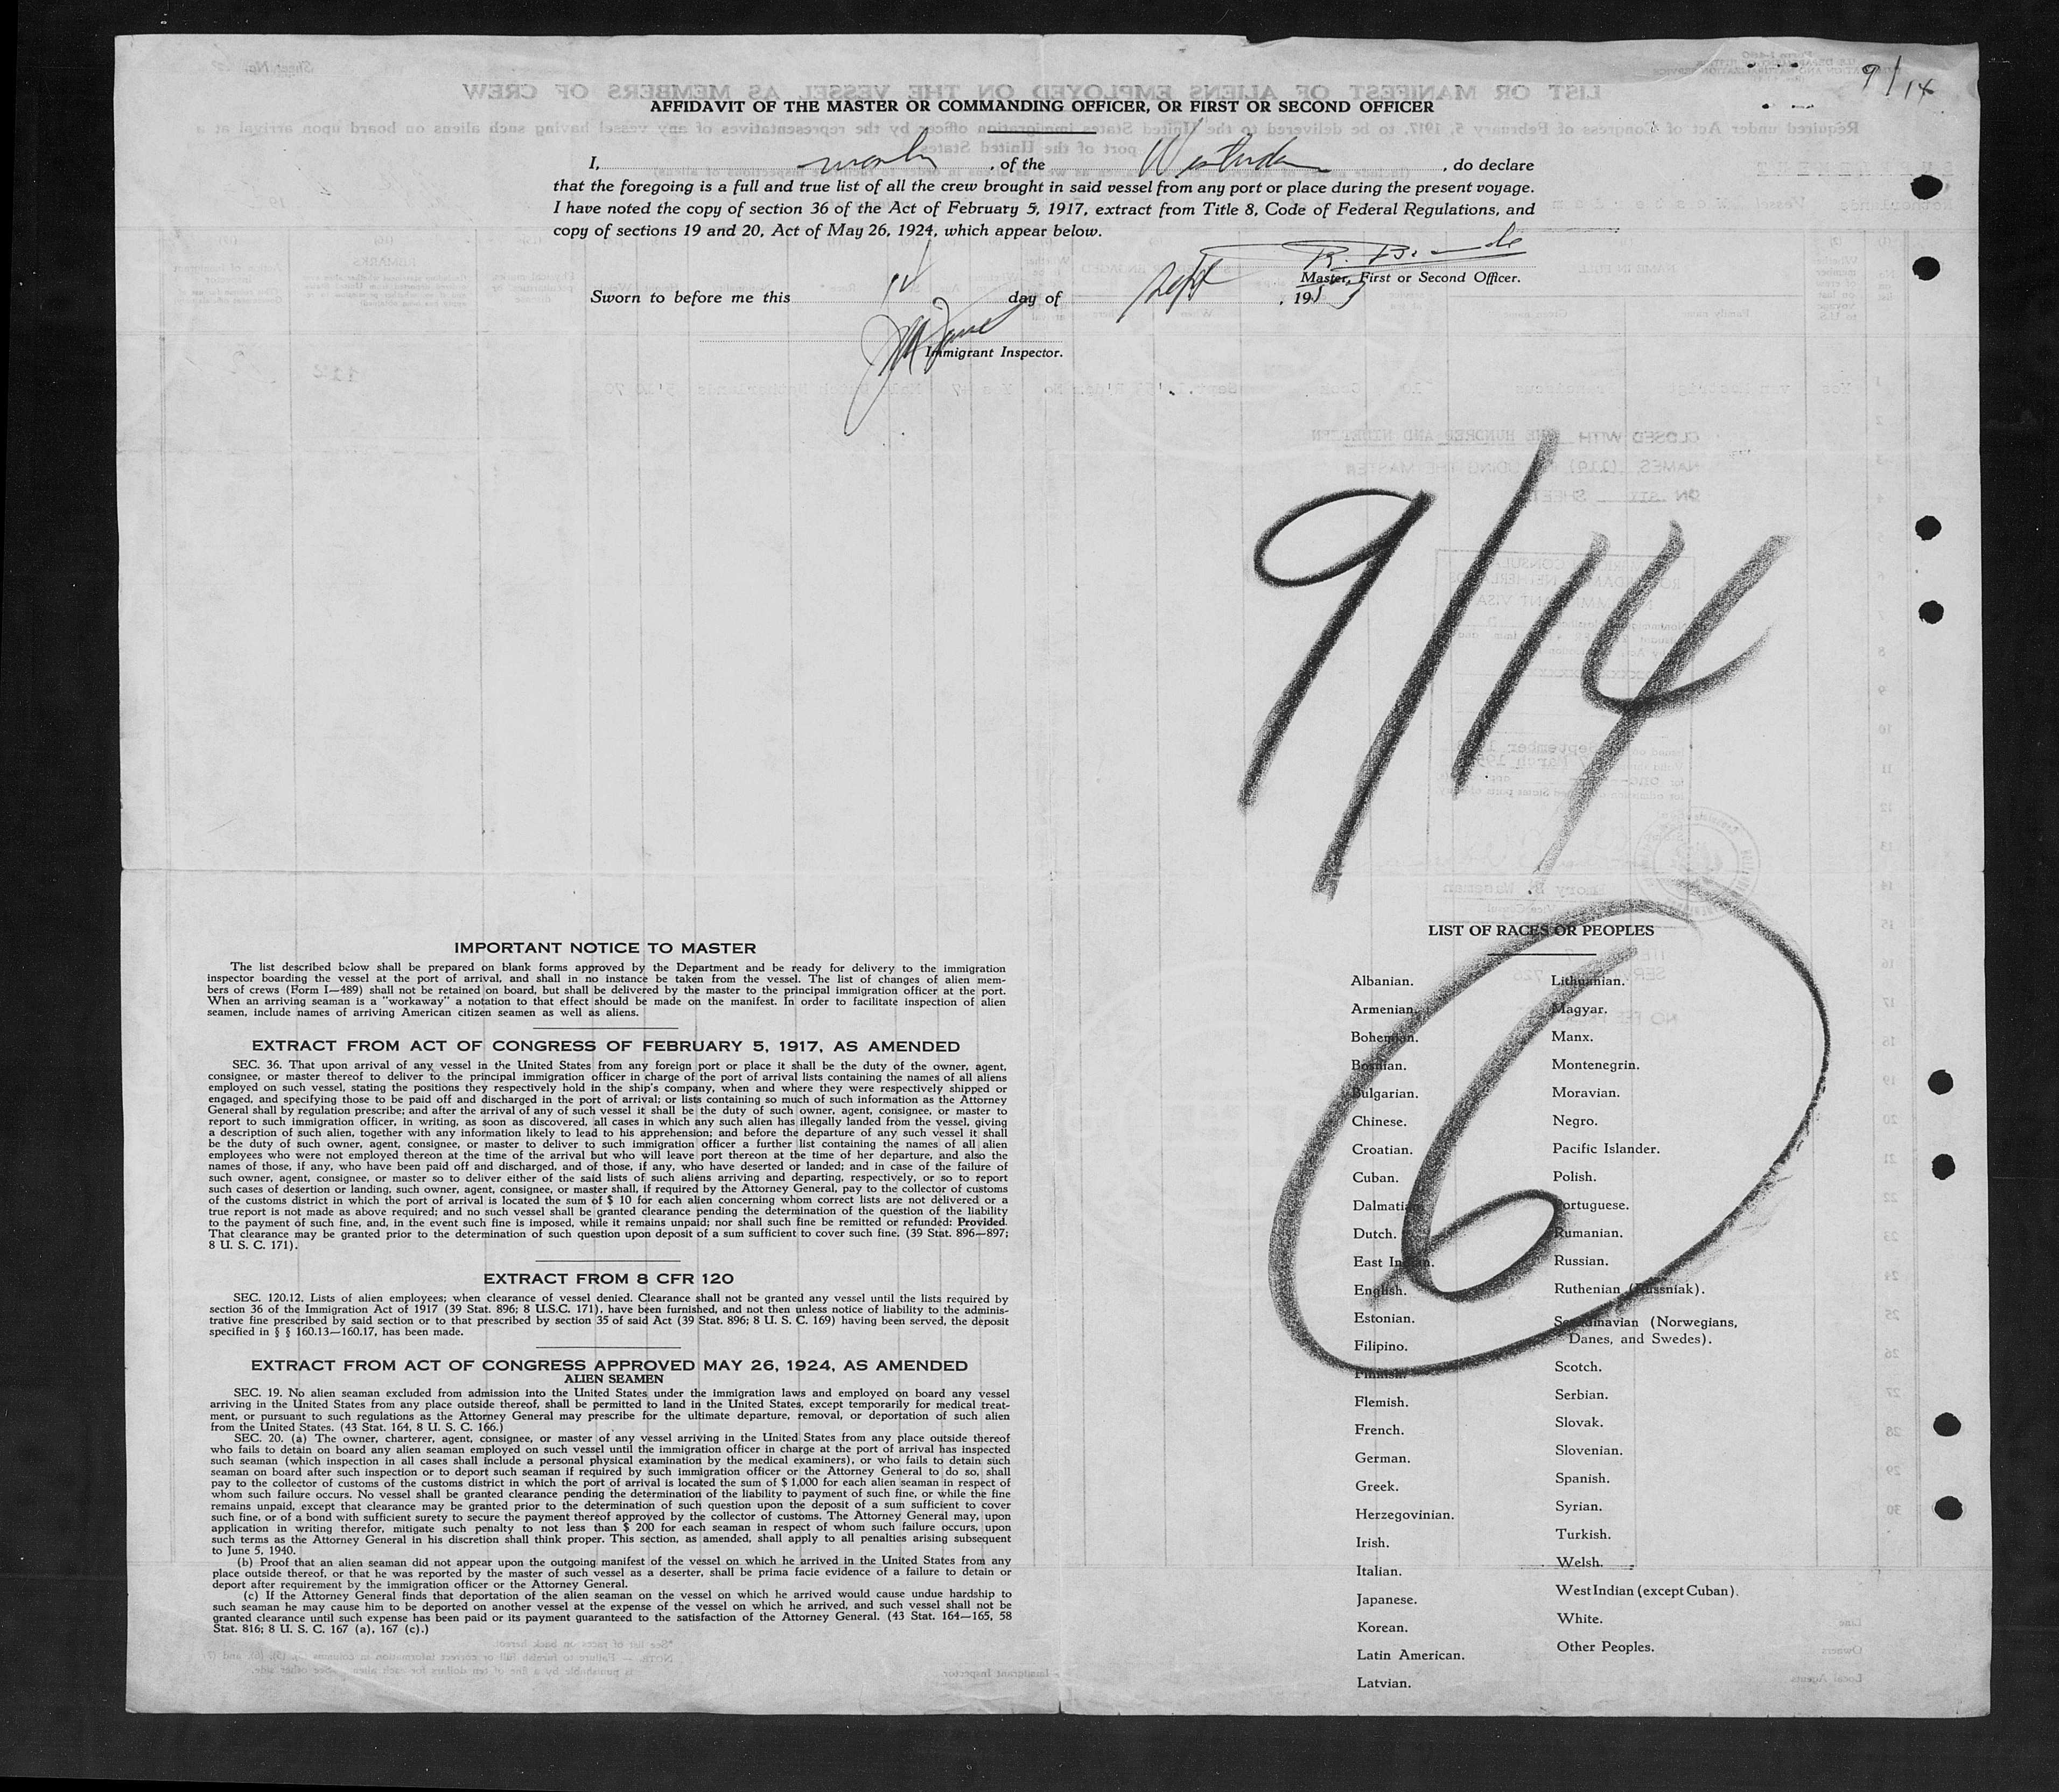 9/14
AFFIDAVIT OF THE MASTER OR COMMANDING OFFICER, OR FIRST OR SECOND OFFICER
I, master, of the Westerdam, do declare
that the foregoing is a full and true list of all the crew brought in said vessel from any port or place during the present voyage.
I have noted the copy of section 36 of the Act of February 5, 1917, extract from Title 8, Code of Federal Regulations, and
copy of sections 19 and 20, Act of May 26, 1924, which appear below.
Master, First or Second Officer.
Sworn to before me this 14 day of Sept, 195
Immigrant Inspector.
9/14
6
IMPORTANT NOTICE TO MASTER
The list described below shall be prepared on blank forms approved by the Department and be ready for delivery to the immigration
inspector boarding the vessel at the port of arrival, and shall in no instance be taken from the vessel. The list of changes of alien mem-
bers of crews (Form I—489) shall not be retained on board, but shall be delivered by the master to the principal immigration officer at the port.
When an arriving seaman is a "workaway" a notation to that effect should be made on the manifest. In order to facilitate inspection of alien
seamen, include names of arriving American citizen seamen as well as aliens.
EXTRACT FROM ACT OF CONGRESS OF FEBRUARY 5, 1917, AS AMENDED
SEC. 36. That upon arrival of any vessel in the United States from any foreign port or place it shall be the duty of the owner, agent,
consignee, or master thereof to deliver to the principal immigration officer in charge of the port of arrival lists containing the names of all aliens
employed on such vessel, stating the positions they respectively hold in the ship's company, when and where they were respectively shipped or
engaged, and specifying those to be paid off and discharged in the port of arrival; or lists containing so much of such information as the Attorney
General shall by regulation prescribe; and after the arrival of any of such vessel it shall be the duty of such owner, agent, consignee, or master to
report to such immigration officer, in writing, as soon as discovered, all cases in which any such alien has illegally landed from the vessel, giving
a description of such alien, together with any information likely to lead to his apprehension; and before the departure of any such vessel it shall
be the duty of such owner, agent, consignee, or master to deliver to such immigration officer a further list containing the names of all alien
employees who were not employed thereon at the time of the arrival but who will leave port thereon at the time of her departure, and also the
names of those, if any, who have been paid off and discharged, and of those, if any, who have deserted or landed; and in case of the failure of
such owner, agent, consignee, or master so to deliver either of the said lists of such aliens arriving and departing, respectively, or so to report
such cases of desertion or landing, such owner, agent, consignee, or master shall, if required by the Attorney General, pay to the collector of customs
of the customs district in which the port of arrival is located the sum of $ 10 for each alien concerning whom correct lists are not delivered or a
true report is not made as above required; and no such vessel shall be granted clearance pending the determination of the question of the liability
to the payment of such fine, and, in the event such fine is imposed, while it remains unpaid; nor shall such fine be remitted or refunded: Provided.
That clearance may be granted prior to the determination of such question upon deposit of a sum sufficient to cover such fine. (39 Stat. 896—897;
8 U. S. C. 171).
EXTRACT FROM 8 CFR 120
SEC. 120.12. Lists of alien employees; when clearance of vessel denied. Clearance shall not be granted any vessel until the lists required by
section 36 of the Immigration Act of 1917 (39 Stat. 896; 8 U.S.C. 171), have been furnished, and not then unless notice of liability to the administra-
trative fine prescribed by said section or to that prescribed by section 35 of said Act (39 Stat. 896; 8 U. S. C. 169) having been served, the deposit
specified in § § 160.13—160.17, has been made.
EXTRACT FROM ACT OF CONGRESS APPROVED MAY 26, 1924, AS AMENDED
ALIEN SEAMEN
SEC. 19. No alien seaman excluded from admission into the United States under the immigration laws and employed on board any vessel
arriving in the United States from any place outside thereof, shall be permitted to land in the United States, except temporarily for medical treat-
ment, or pursuant to such regulations as the Attorney General may prescribe for the ultimate departure, removal, or deportation of such alien
from the United States. (43 Stat. 164, 8 U. S. C. 166.)
SEC. 20. (a) The owner, charterer, agent, consignee, or master of any vessel arriving in the United States from any place outside thereof
who fails to detain on board any alien seaman employed on such vessel until the immigration officer in charge at the port of arrival has inspected
such seaman (which inspection in all cases shall include a personal physical examination by the medical examiners), or who fails to detain such
seaman on board after such inspection or to deport such seaman if required by such immigration officer or the Attorney General to do so, shall
pay to the collector of customs of the customs district in which the port of arrival is located the sum of $ 1,000 for each alien seaman in respect of
whom such failure occurs. No vessel shall be granted clearance pending the determination of the liability to payment of such fine, or while the fine
remains unpaid, except that clearance may be granted prior to the determination of such question upon the deposit of a sum sufficient to cover
such fine, or of a bond with sufficient surety to secure the payment thereof approved by the collector of customs. The Attorney General may, upon
application in writing therefor, mitigate such penalty to not less than $ 200 for each seaman in respect of whom such failure occurs, upon
such terms as the Attorney General in his discretion shall think proper. This section, as amended, shall apply to all penalties arising subsequent
to June 5, 1940.
(b) Proof that an alien seaman did not appear upon the outgoing manifest of the vessel on which he arrived in the United States from any
place outside thereof, or that he was reported by the master of such vessel as a deserter, shall be prima facie evidence of a failure to detain or
deport after requirement by the immigration officer or the Attorney General.
(c) If the Attorney General finds that deportation of the alien seaman on the vessel on which he arrived would cause undue hardship to
such seaman he may cause him to be deported on another vessel at the expense of the vessel on which he arrived, and such vessel shall not be
granted clearance until such expense has been paid or its payment guaranteed to the satisfaction of the Attorney General. (43 Stat. 164—165, 58
Stat. 816; 8 U. S. C. 167 (a), 167 (c).)
LIST OF RACES OR PEOPLES
Albanian.
Armenian.
Bohemian.
Bosnian.
Bulgarian.
Chinese.
Croatian.
Cuban.
Dalmatian.
Dutch.
East Indian.
English.
Estonian.
Filipino.
Finnish.
Flemish.
French.
German.
Greek.
Herzegovinian.
Irish.
Italian.
Japanese.
Korean.
Latin American.
Latvian.
Lithuanian.
Magyar.
Manx.
Montenegrin.
Moravian.
Negro.
Pacific Islander.
Polish.
Portuguese.
Rumanian.
Russian.
Ruthenian (Russniak).
Scandinavian (Norwegians,
Danes, and Swedes).
Scotch.
Serbian.
Slovak.
Slovenian.
Spanish.
Syrian.
Turkish.
Welsh.
West Indian (except Cuban).
White.
Other Peoples.